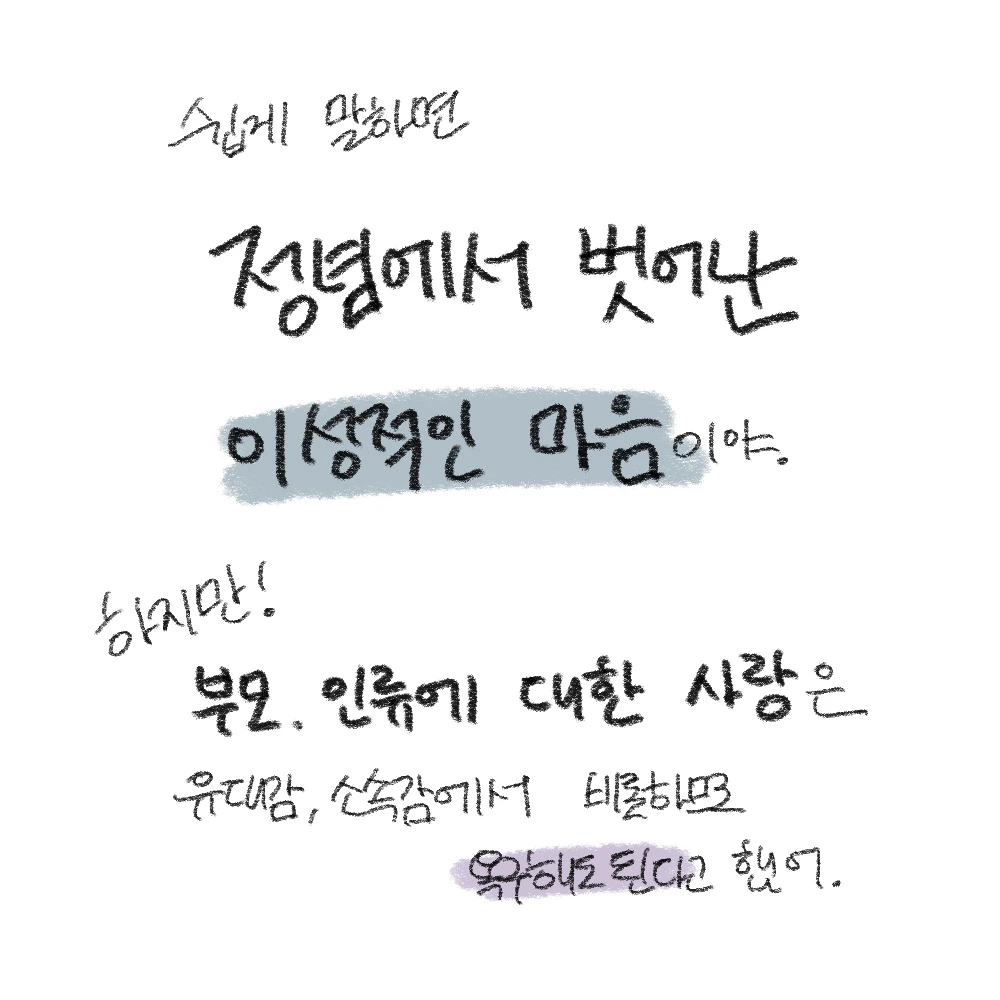 쉽게 말하면
정념에서 벗어난
이성적인 마음이야.
하지만!
부모. 인류에 대한 사랑은
유대감, 소속감에서 비롯하므로
욕구해도 된다고 했어.